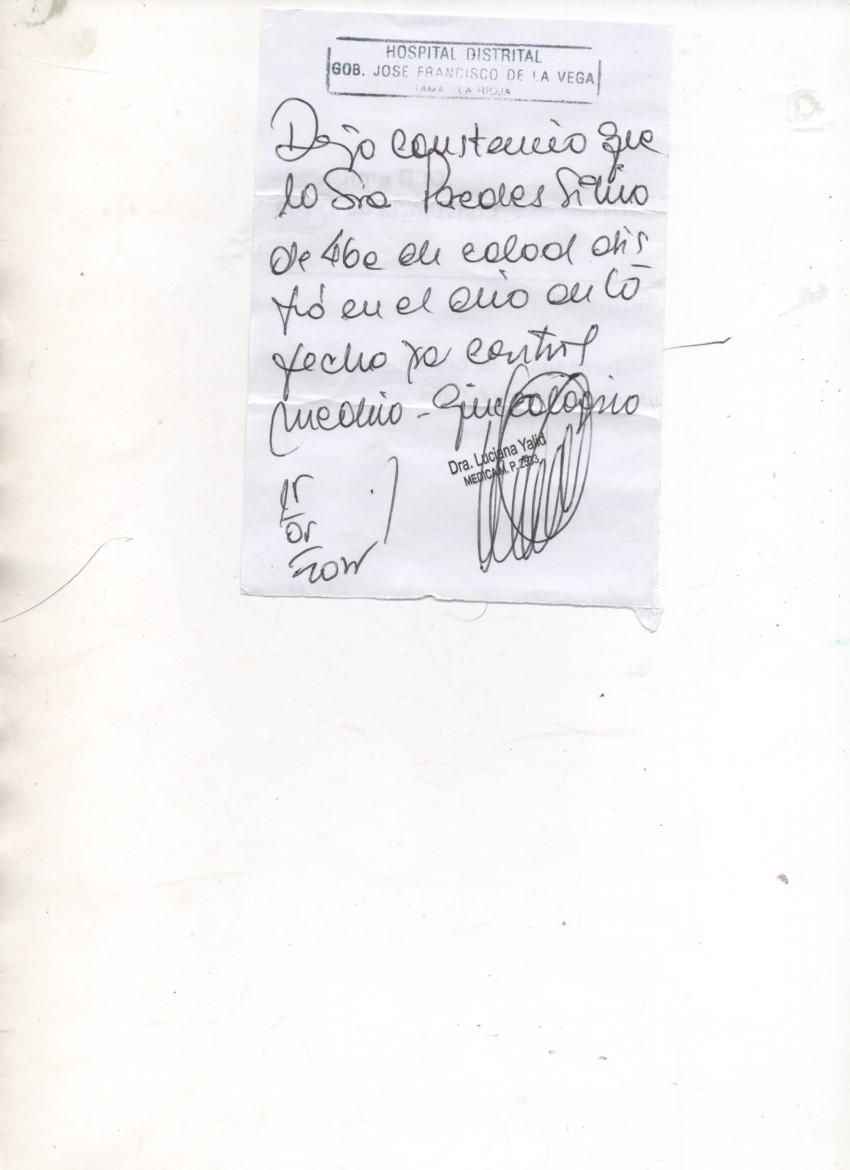 HOSPITAL DISTRITAL
GOB. JOSE FRANCISCO DE LA VEGA
TAMA LA RIOJA
Dejo constancia que
la Sra Paredes Silvia
de 46a de edad asis
tió en el día de la
fecha pa control
medico - Ginecologico
Dra. Luciana Yalid
MEDICA M. P. 2593